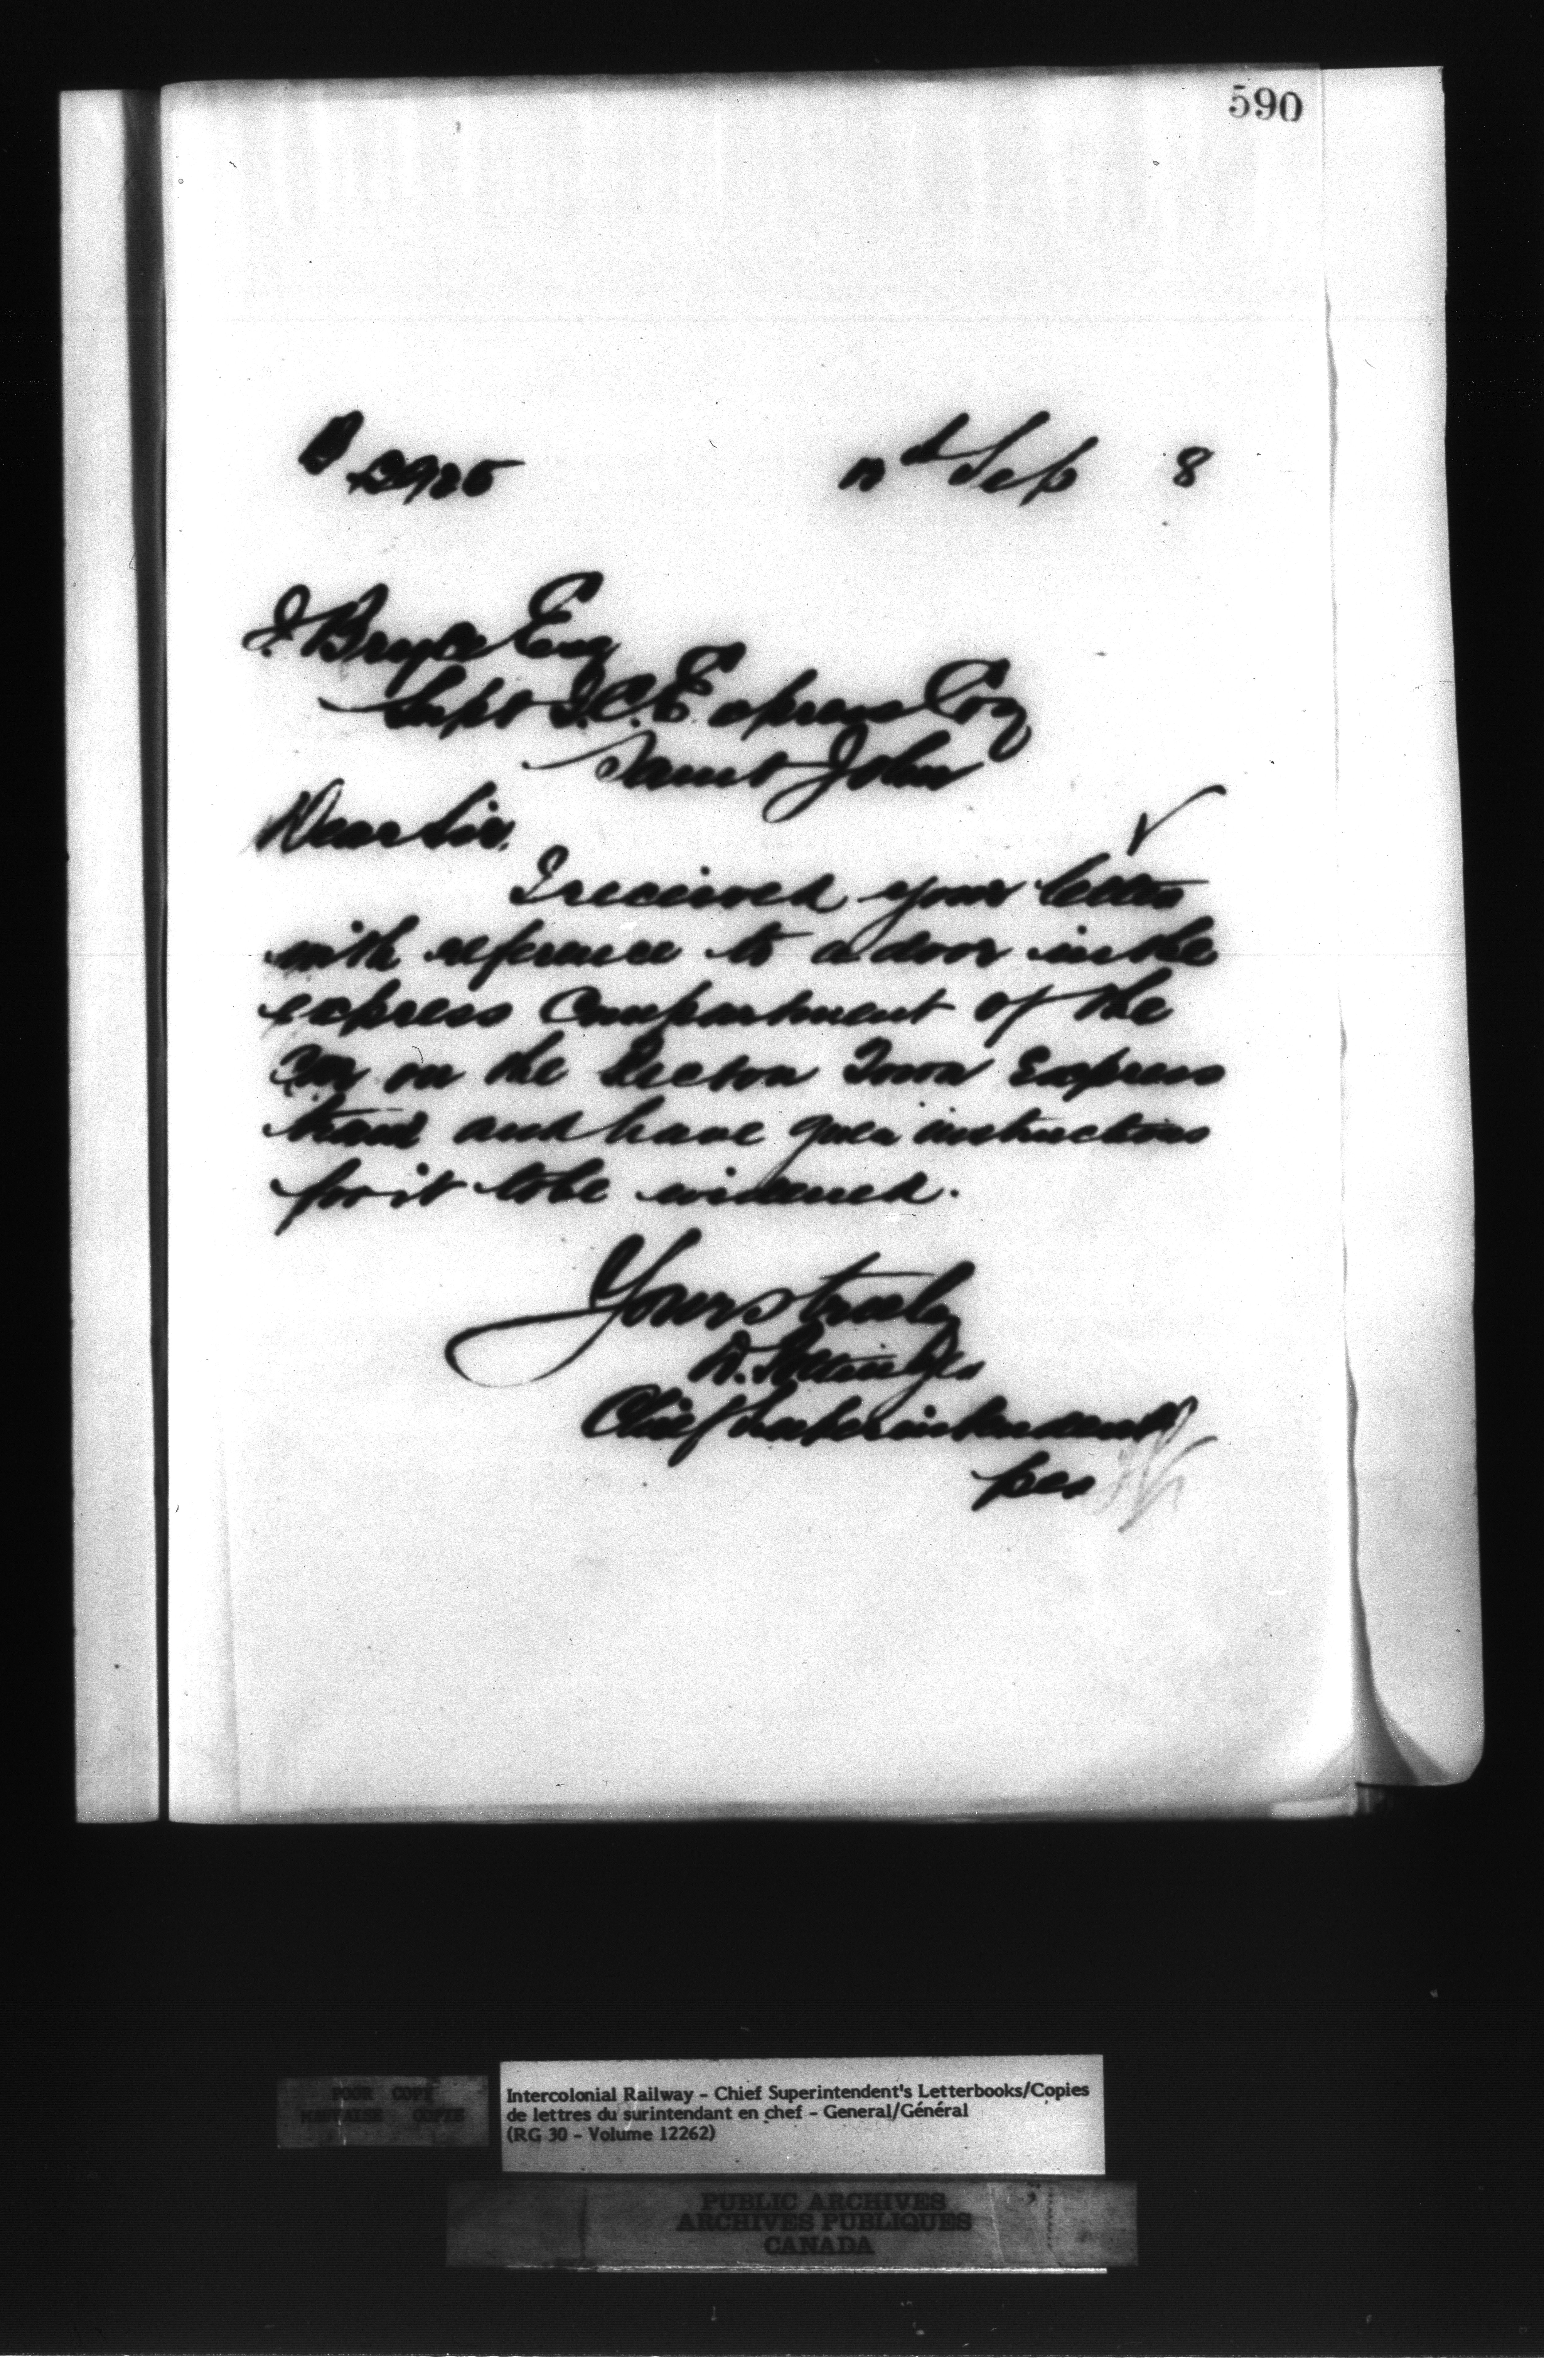 590
Sep 8
J. Bryce Esq
Supt I. C. Express Coy
Saint John
Dear Sir.
I received your letter
with reference to a door in the
express Compartment of the
Car on the Town Express
train and have given instructions
for it to be widened.
Yours truly
D. Pottinger
Chief Superintendent
per
POOR COPY
MAUVAISE COPIE
Intercolonial Railway - Chief Superintendent's Letterbooks/Copies
de lettres du surintendant en chef - General/Général
(RG 30 - Volume 12262)
PUBLIC ARCHIVES
ARCHIVES PUBLIQUES
CANADA